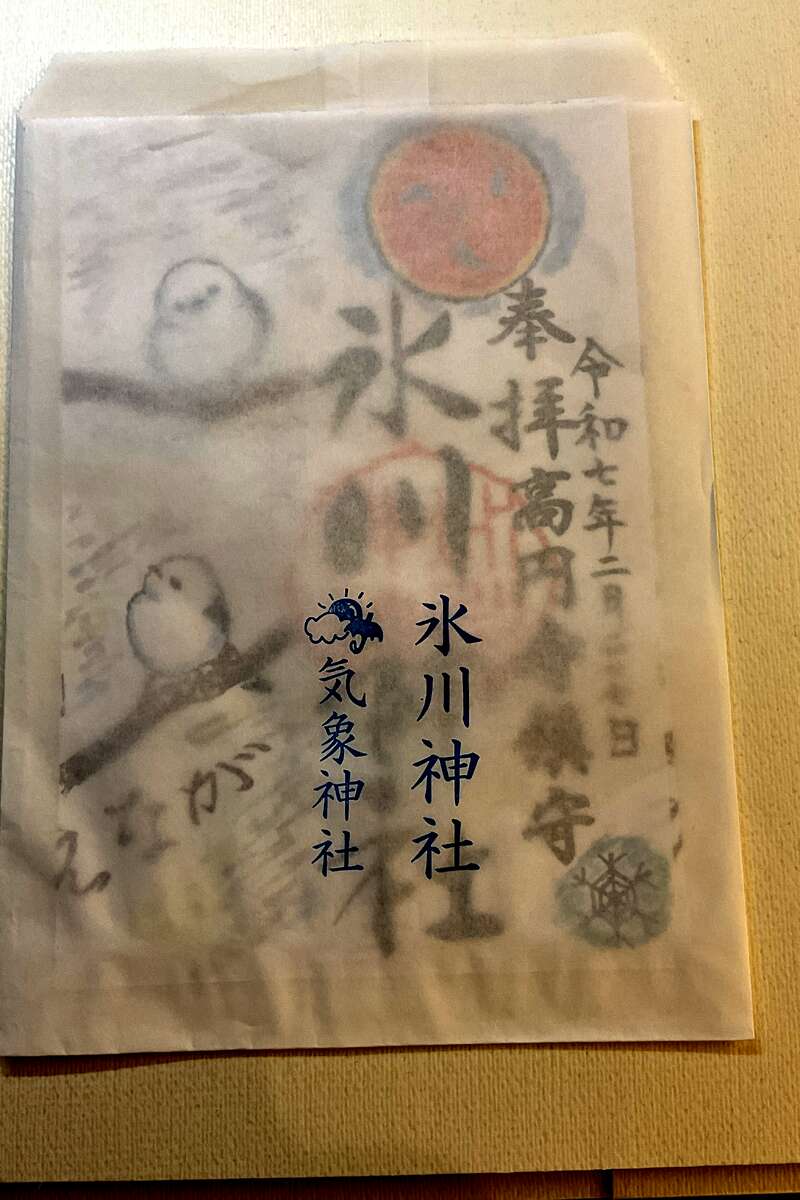 令和七年二月二十七日
奉拝
高円寺鎮守
氷川神社
氷川神社
気象神社
ながえ